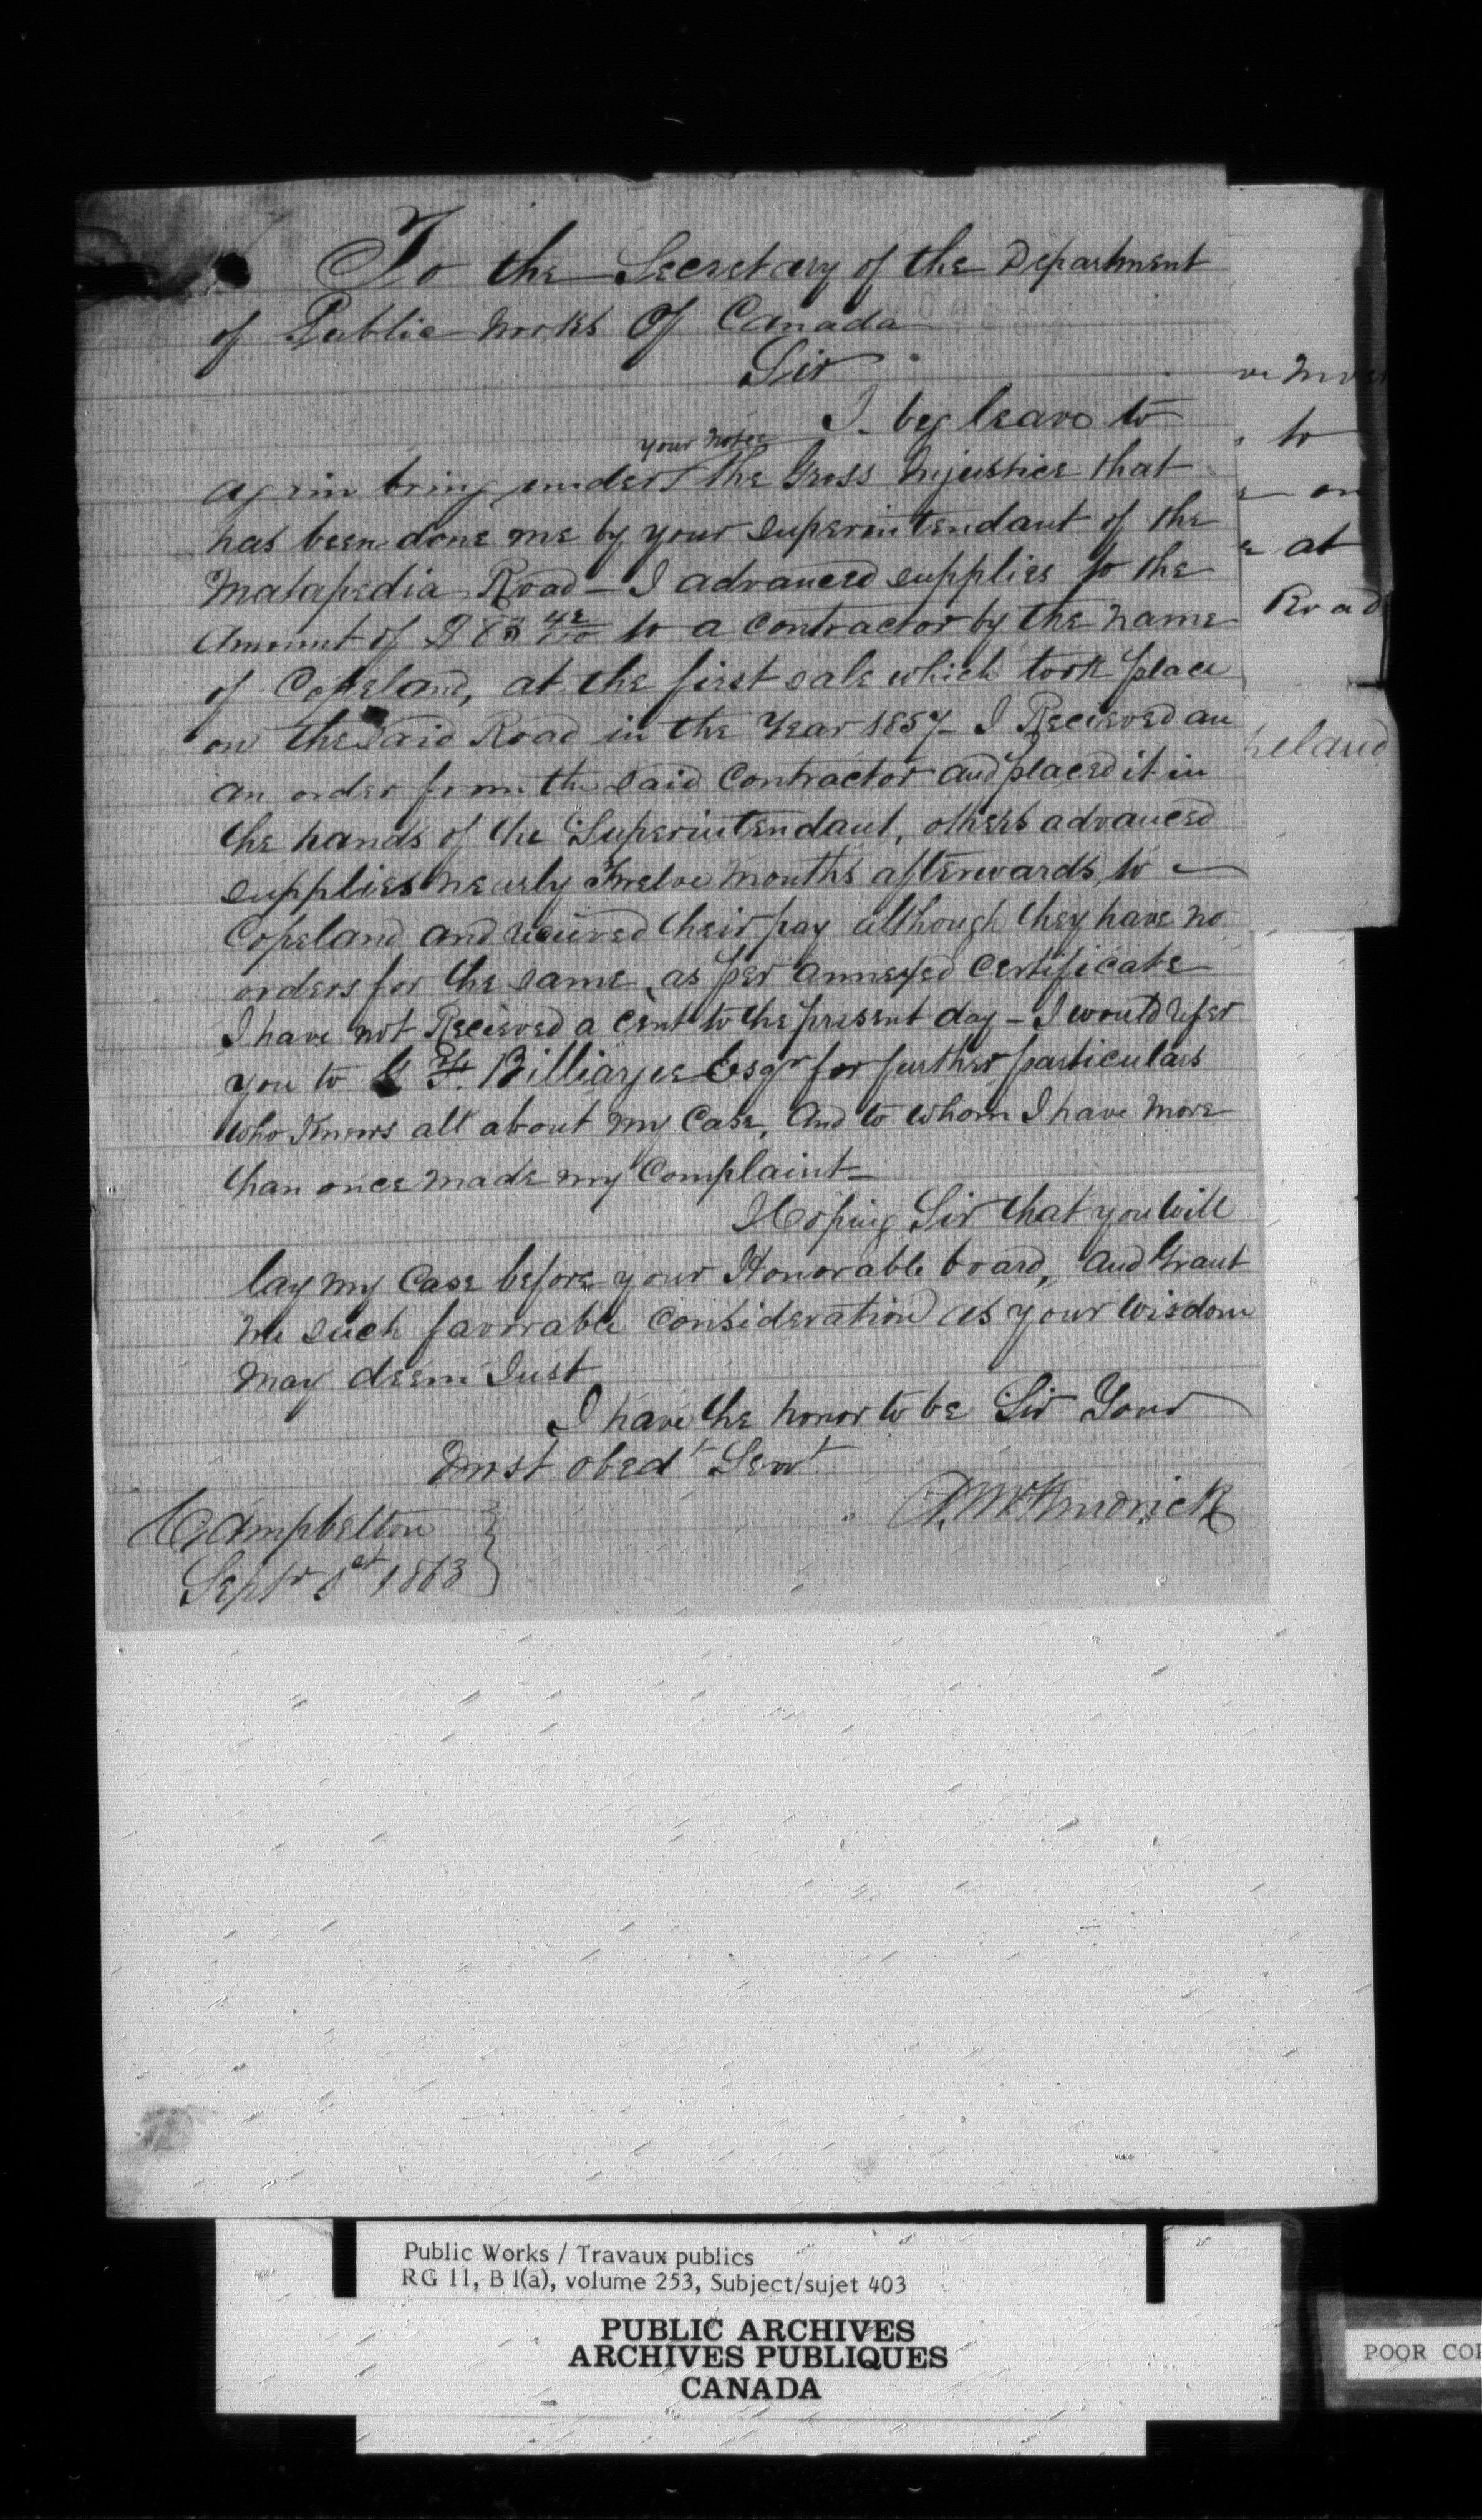 To the Secretary of the Department
of Public Works Of Canada
Sir
I beg leave to
your notice
again bring under the Gross Injustice that
has been done me by your Superintendant of the
Matapedia Road - I advanced supplies to the
Amount of $83 42/100 to a contractor by the name
of Copeland, at the first sale which took place
on the said Road in the Year 1857 - I Recieved an
an order from the said Contractor and placed it in
the hands of the Superintendant, others advanced
supplies nearly Twelve Months afterwards, to
Copeland and recieved their pay although they have no
orders for the same, as per annexed Certificate
I have not Recieved a Cent to the present day - I would refer
you to G F. Billiarjee Esqr for further particulars
who Knows all about my Case, And to whom I have more
than once made my Complaint -
Hoping Sir that you will
lay my Case before your Honorable board, and Grant
me such favorable Consideration as your Wisdom
may deem Just
I have the honor to be Sir Your
most obedt Servt
Campbelton
Septr 1st 1863
ve
to
on
at
Road
eland
Public Works / Travaux publics
RG 11, B 1(a), volume 253, Subject/sujet 403
PUBLIC ARCHIVES
ARCHIVES PUBLIQUES
CANADA
POOR COP